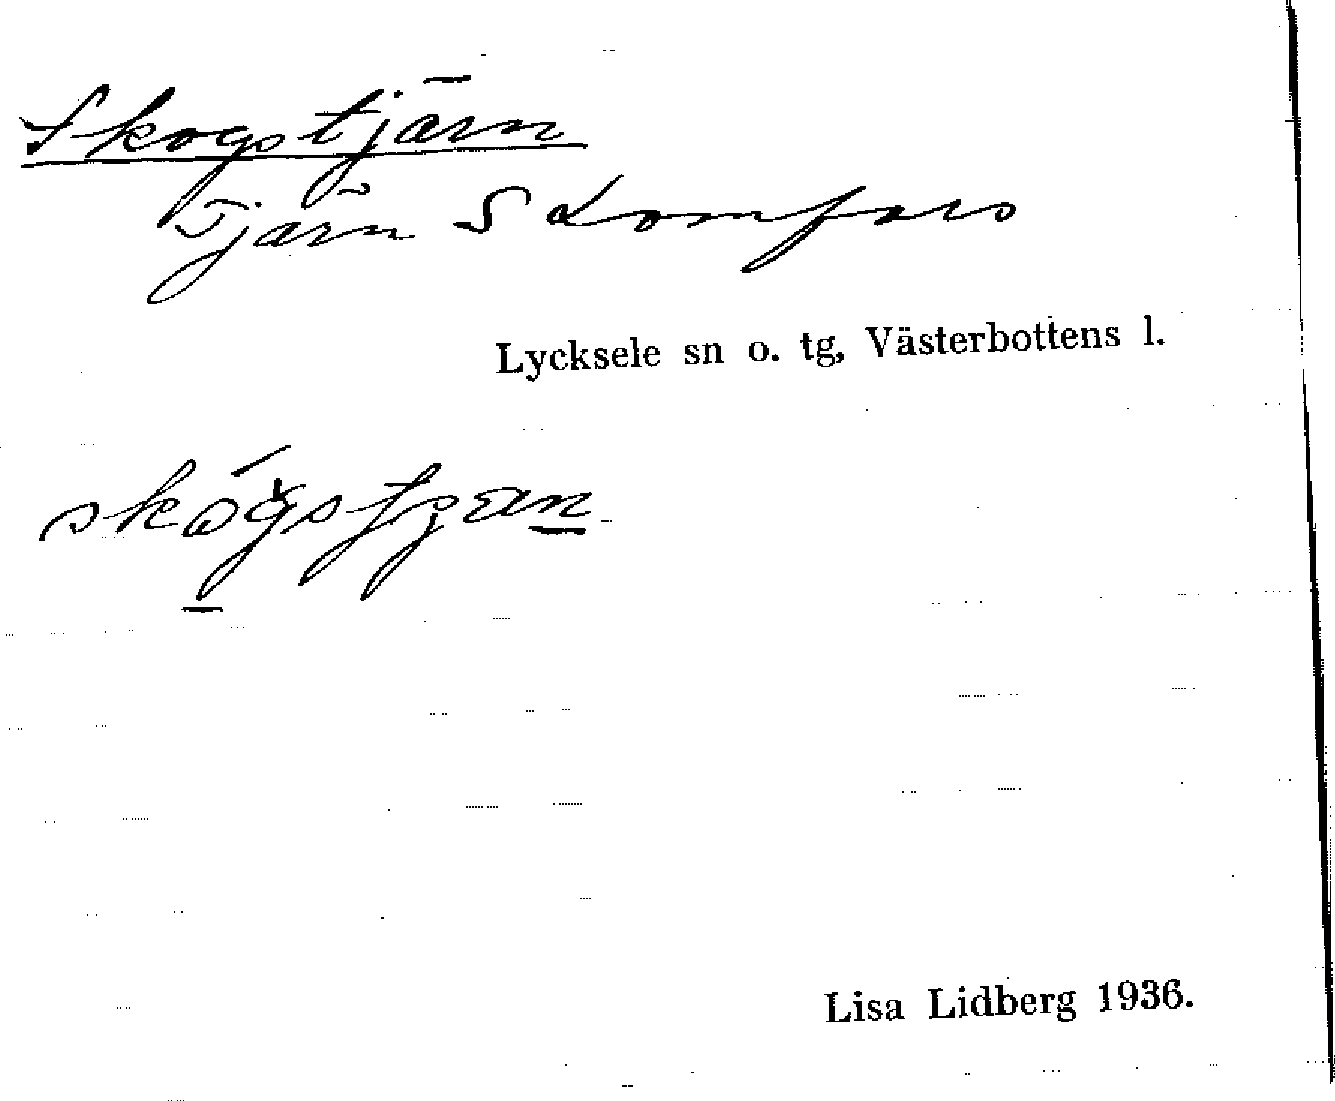 Skogstjärn
Tjärn S Lomfors
Lycksele sn o. tg, Västerbottens l.
Lisa Lidberg 1936.